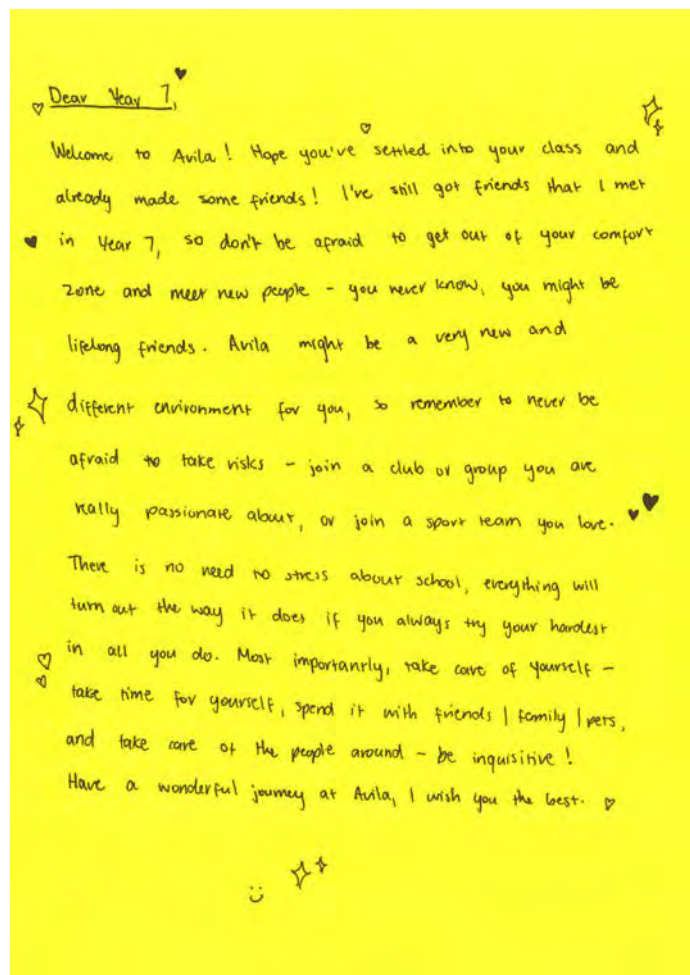 Dear Year 7,
Welcome to Avila! Hope you've settled into your class and
already made some friends! I've still got friends that I met
in Year 7, so don't be afraid to get out of your comfort
zone and meet new people - you never know, you might be
lifelong friends. Avila might be a very new and
different environment for you, so remember to never be
afraid to take risks - join a club or group you are
really passionate about, or join a sport team you love.
There is no need to stress about school, everything will
turn out the way it does if you always try your hardest
in all you do. Most importantly, take care of yourself -
take time for yourself, spend it with friends | family | pets,
and take care of the people around - be inquisitive!
Have a wonderful journey at Avila, I wish you the best.